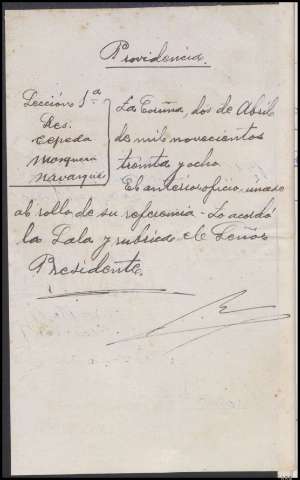 Providencia.
Sección 1ª
Sres.
Cepeda
Mosquera
La Coruña, dos de Abril
de mil novecientos
treinta y ocho.
El anterior oficio, únase
al rollo de su referencia - Lo acordó
la Sala y rubrica el Señor
Presidente.